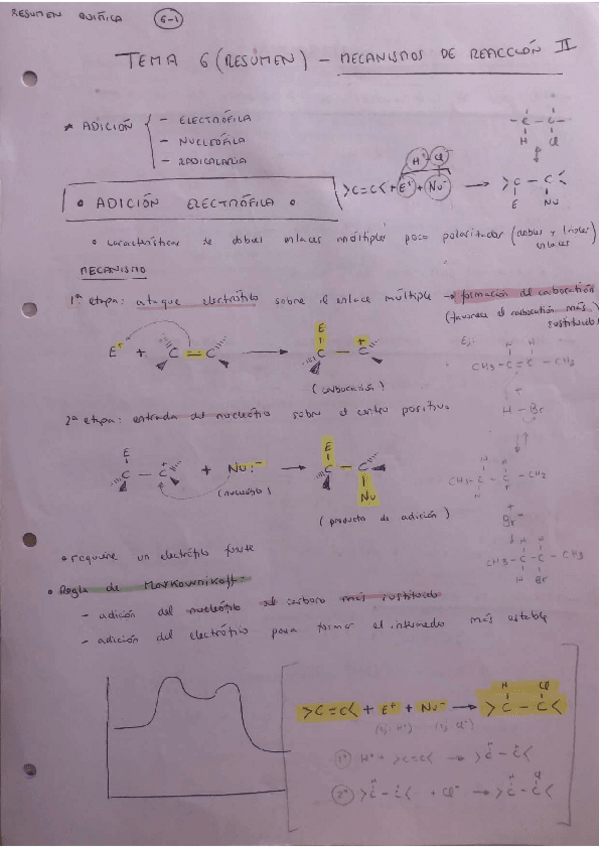 RESUMEN QUÍMICA 6-1
TEMA 6 (RESUMEN) - MECANISMOS DE REACCIÓN II
* ADICIÓN
- ELECTRÓFILA
- NUCLEÓFILA
- RADICALARIA
H⁺ Cl⁻
>C=C< + E⁺ + Nu⁻ → >C - C<
E Nu
- C - C -
H Cl
• ADICIÓN ELECTRÓFILA •
• características de dobles enlaces múltiple poco polarizados (dobles y triples enlaces)
MECANISMO
1ª etapa: ataque electrófilo sobre el enlace múltiple → formación del carbocatión
(favorece el carbocatión más sustituido)
E⁺ + C = C → C - C
E +
(carbocatión)
Ej:
H H
CH₃ - C = C - CH₃
+
H - Br
2ª etapa: entrada del nucleófilo sobre el centro positivo
E
C - C⁺ + Nu:⁻ → C - C
E
Nu
(nucleófilo)
(producto de adición)
CH₃ - C - C - CH₃
+
Br⁻
CH₃ - C - C - CH₃
H Br
• requiere un electrófilo fuerte
• Regla de Markownikoff:
- adición del nucleófilo al carbono más sustituido
- adición del electrófilo para formar el intermedio más estable
H Cl
>C=C< + E⁺ + Nu⁻ → >C - C<
(ej: H⁺) (ej: Cl⁻)
1ª H⁺ + >C=C< → >C - C<
H Cl
2ª >C - C< + Cl⁻ → >C - C<